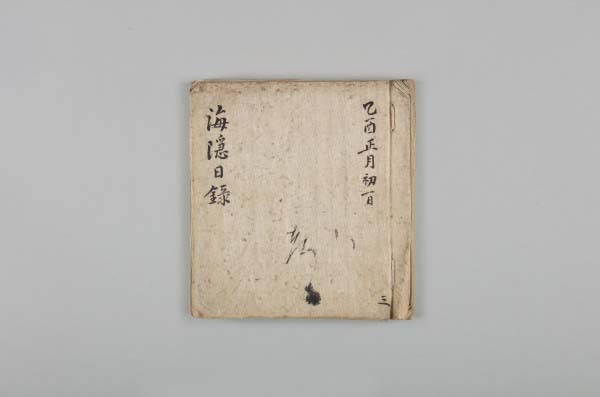 乙酉正月初一日
海隱日錄
三